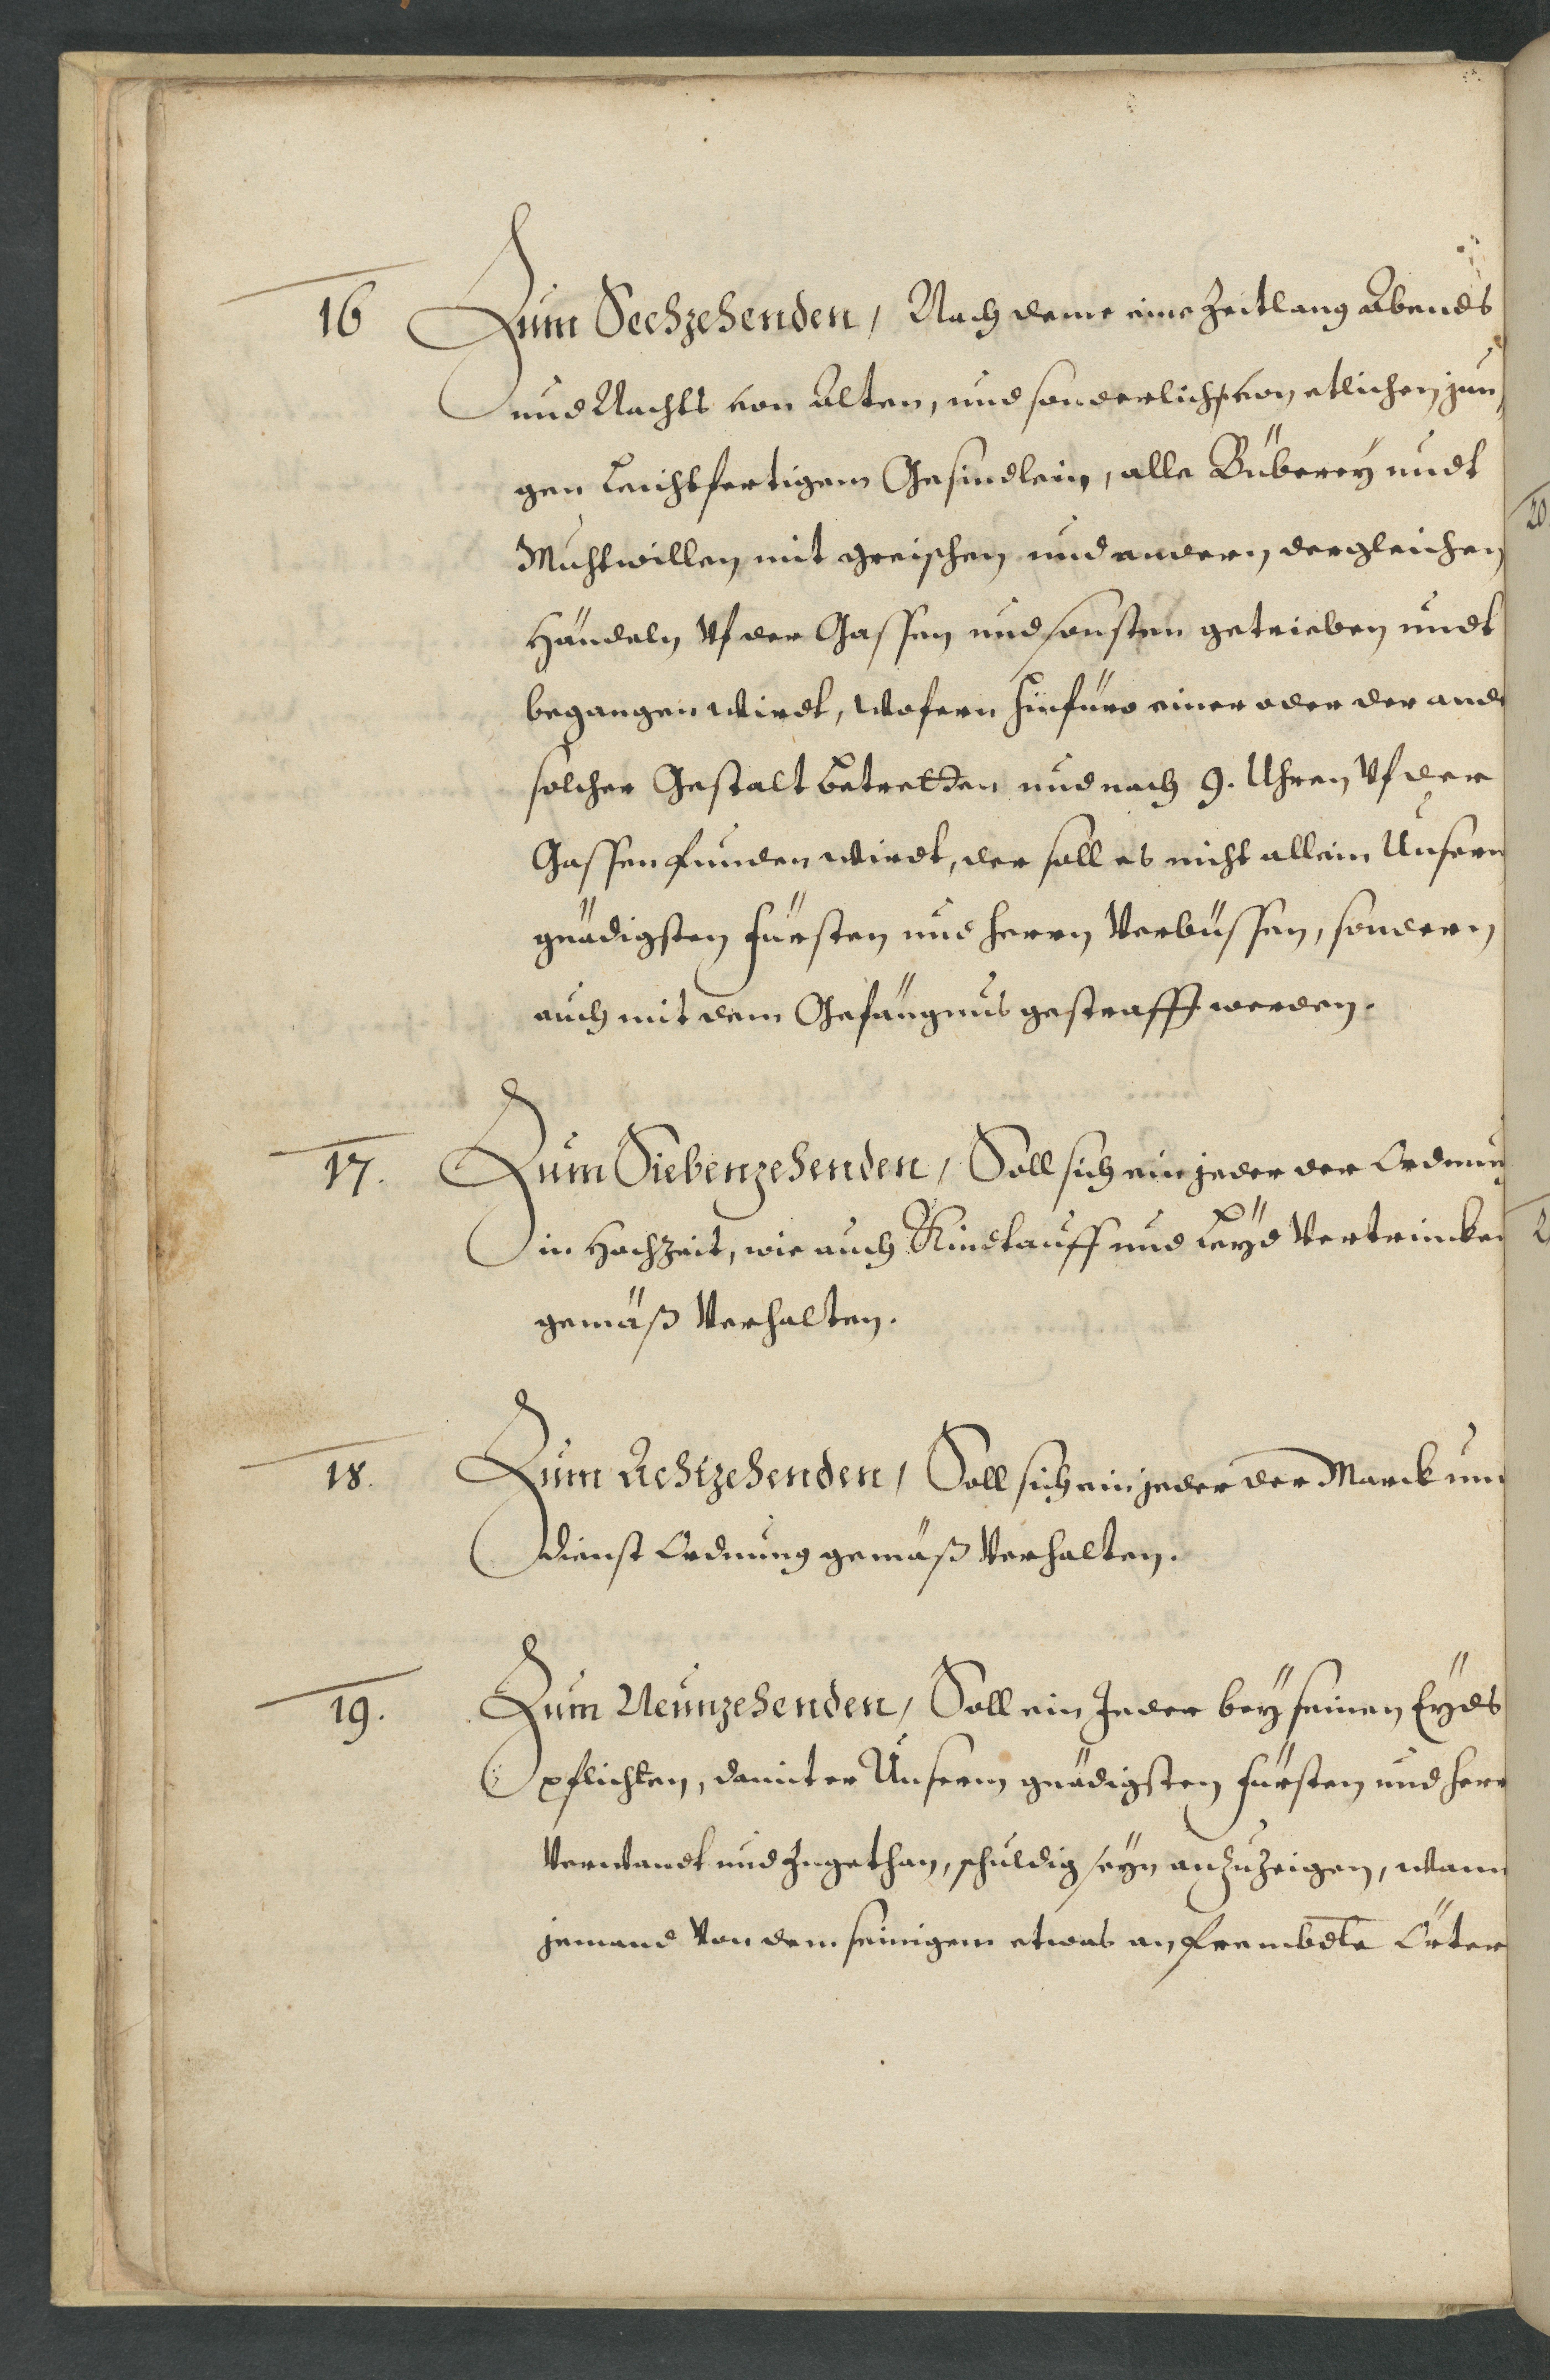 16 Zum Sechzehenden, Nach deme eine Zeitlang Abends
und Nachts von Alten, und sonderlich von etlichen jun,
gen Leichtfertigem Gesindlein, alle Büberey undt
Muhtwillen mit greischen und andern dergleichen
Händeln Uf der Gassen und sonsten getrieben undt
begangen wirdt, wofern hinfüro einer oder der and
solcher Gestalt betretten und nach 9. Uhren Uf der
Gassen funden wirdt, der soll es nicht allein Unserm
gnädigsten Fürsten und Herrn Verbüssen, sondern
auch mit dem Gefängnus gestrafft werden.
17. Zum Siebenzehenden, Soll sich ein jeder der Ordnung
in Hochzeit, wie auch Kindtauff und Leyd Vertrincken
gemäß Verhalten.
18. Zum Achtzehenden, Soll sich ein jeder der Marck und
dienst Ordnung gemäß Verhalten.
19. Zum Neunzehenden, Soll ein Jeder bey seinen Eyds
pflichten, damit er Unserm gnädigsten Fürsten und Herr
Verwandt und Zugethan, schuldig seyn anzuzeigen, wann
jemand Von dem seinigem etwas an frembdte Örter
20